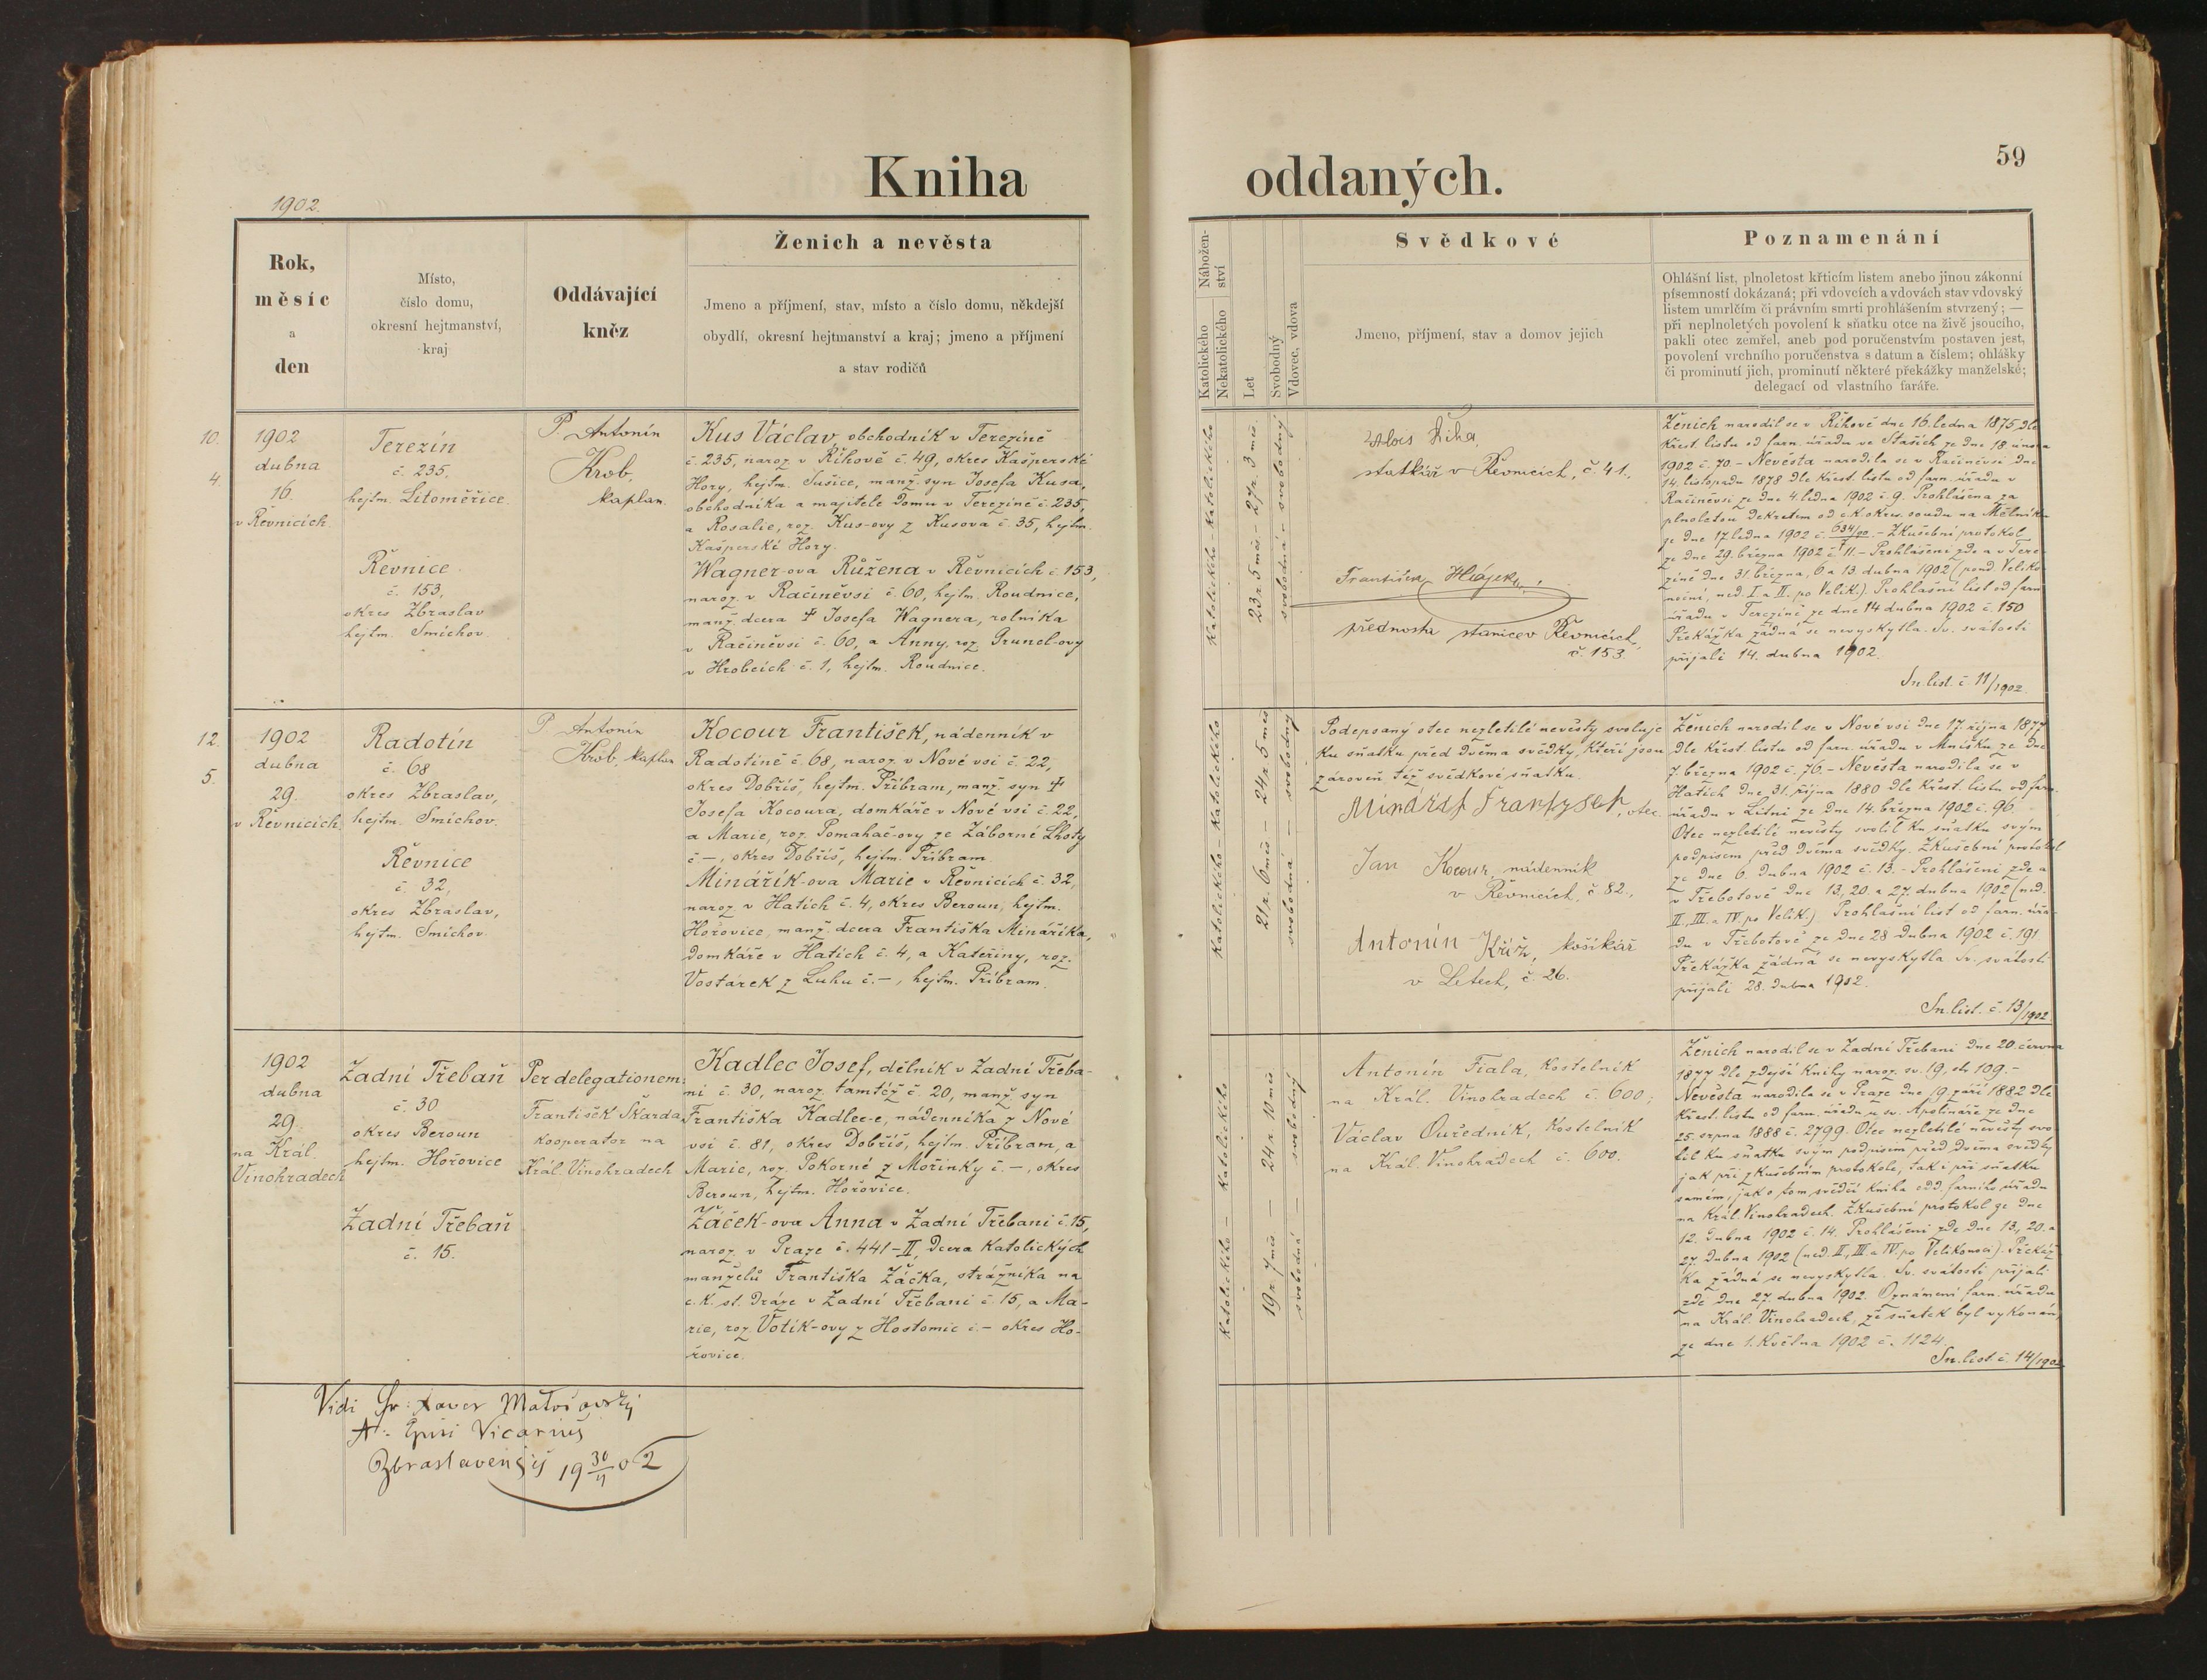 Kniha
oddaných.
59
1902.
Rok,
měsíc
a
den
Místo,
číslo domu,
okresní hejtmanství,
kraj
Oddávající
kněz
Ženich a nevěsta
Jmeno a příjmení, stav, místo a číslo domu, někdejší
obydlí, okresní hejtmanství a kraj; jmeno a příjmení
a stav rodičů
Nábožen-
ství
Katolického
Nekatolického
Let
Svobodný
Vdovec, vdova
Svědkové
Jmeno, příjmení, stav a domov jejich
Poznamenání
Ohlášní list, plnoletost křticím listem anebo jinou zákonní
písemností dokázaná; při vdovcích a vdovách stav vdovský
listem umrlčím či právním smrti prohlášením stvrzený; —
při neplnoletých povolení k sňatku otce na živě jsoucího,
pakli otec zemřel, aneb pod poručenstvím postaven jest,
povolení vrchního poručenstva s datum a číslem; ohlášky
či prominutí jich, prominutí některé překážky manželské;
delegací od vlastního faráře.
10.
4.
1902
dubna
16.
v Řevnicích
Terezín
č. 235,
hejtm. Litoměřice
Řevnice
č. 153,
okres Zbraslav
hejtm. Smíchov.
P. Antonín
Krob,
kaplan.
Kus Václav, obchodník v Terezíně
č. 235, naroz. v Říhově č. 49, okres Kašperské
Hory, hejtm. Sušice, manž. syn Josefa Kusa,
obchodníka a majitele domu v Terezíně č. 235,
a Rosalie, roz. Kus-ovy z Kusova č. 35, hejtm.
Kašperské Hory.
Wagner-ova Růžena v Řevnicích č. 153,
naroz. v Račiněvsi č. 60, hejtm. Roudnice,
manž. dcera † Josefa Wagnera, rolníka
v Račiněvsi č. 60, a Anny, roz. Gruncl-ovy
v Hrobcích č. 1, hejtm. Roudnice.
Katolického – Katolického
23 r. 5 měs. – 27 r. 3 měs.
svobodná – svobodný
Alois Říha,
statkář v Řevnicích, č. 41.
František Hájek,
přednosta stanice v Řevnicích,
č. 153.
Ženich narodil se v Říhově dne 16. ledna 1875 dle
křest. listu od farn. úřadu ve Staších ze dne 18. února
1902 č. 70. – Nevěsta narodila se v Račiněvsi dne
14. listopadu 1878 dle křest. listu od farn. úřadu v
Račiněvsi ze dne 4. ledna 1902 č. 9. Prohlášena za
plnoletou dekretem od c. k. okres. soudu na Mělníku
ze dne 17. ledna 1902 č. 634/00. – Zkušební protokol
ze dne 29. března 1902 č. 11. – Prohlášeni zde a v Tere-
zíně dne 31. března, 6. a 13. dubna 1902 (pond. Veliko-
noční, ned. I. a II. po Velik.). Prohlašní list od farn.
úřadu v Terezíně ze dne 14 dubna 1902 č. 150
Překážka žádná se nevyskytla. Sv. svátosti
přijali 14. dubna 1902.
Sn. list. č. 11/1902.
12.
5.
1902
dubna
29.
v Řevnicích
Radotín
č. 68
okres Zbraslav,
hejtm. Smíchov.
Řevnice
č. 32,
okres Zbraslav,
hejtm. Smíchov.
P. Antonín
Krob, kaplan
Kocour František, nádenník v
Radotíně č. 68, naroz. v Nové vsi č. 22,
okres Dobříš, hejtm. Příbram, manž. syn †
Josefa Kocoura, domkáře v Nové vsi č. 22,
a Marie, roz. Pomahač-ovy ze Záborné Lhoty
č. –, okres Dobříš, hejtm. Příbram.
Minářík-ova Marie v Řevnicích č. 32,
naroz. v Hatích č. 4, okres Beroun, hejtm.
Hořovice, manž. dcera Františka Mináříka,
domkáře v Hatích č. 4, a Kateřiny, roz.
Vostárek z Luhu č. –, hejtm. Příbram.
Katolického – Katolického
21 r. 6 měs. – 24 r. 5 měs.
svobodná – svobodný
Podepsaný otec nezletilé nevěsty svoluje
ku sňatku před dvěma svědky, kteří jsou
zároveň též svědkové sňatku.
otec.
Jan Kocour, nádenník
v Řevnicích, č. 82.
Antonín Kříž, košíkář
v Letech, č. 26.
Ženich narodil se v Nové vsi dne 17. října 1877
dle křest. listu od farn. úřadu v Mníšku ze dne
7. března 1902 č. 76. – Nevěsta narodila se v
Hatích dne 31. října 1880 dle křest. listu od farn.
úřadu v Litni ze dne 14. března 1902 č. 96.
Otec nezletilé nevěsty svolil ku sňatku svým
podpisem před dvěma svědky. Zkušební protokol
ze dne 6. dubna 1902 č. 13. – Prohlášeni zde a
v Třebotově dne 13., 20. a 27. dubna 1902 (ned.
II., III. a IV. po Velik.). Prohlašní list od farn. úřa-
du v Třebotově ze dne 28 dubna 1902 č. 191
Překážka žádná se nevyskytla. Sv. svátosti
přijali 28. dubna 1902.
Sn. list. č. 13/1902.
1902
dubna
29.
na Král.
Vinohradech
Zadní Třebaň
č. 30
okres Beroun
hejtm. Hořovice
Zadní Třebaň
č. 15.
Per delegationem:
František Škarda,
kooperator na
Král. Vinohradech
Kadlec Josef, dělník v Zadní Třeba-
ni č. 30, naroz. tamtéž č. 20, manž. syn
Františka Kadlec-e, nádenníka z Nové
vsi č. 81, okres Dobříš, hejtm. Příbram, a
Marie, roz. Pokorné z Mořinky č. –, okres
Beroun, hejtm. Hořovice.
Žáček-ova Anna v Zadní Třebani č. 15,
naroz. v Praze č. 441-II, dcera katolických
manželů Františka Žáčka, strážníka na
c. k. st. dráze v Zadní Třebani č. 15, a Ma-
rie, roz. Votík-ovy z Hostomic č. – okres Ho-
řovice.
Katolického – Katolického
19 r. 7 měs. – 24 r. 10 měs.
svobodná – svobodný
Antonín Fiala, kostelník
na Král. Vinohradech č. 600;
Václav Ouředník, kostelník
na Král. Vinohradech č. 600.
Ženich narodil se v Zadní Třebani dne 20. června
1877 dle zdejší knihy naroz. sv. 19, str. 109. –
Nevěsta narodila se v Praze dne 19. září 1882 dle
křest. listu od farn. úřadu u sv. Apolináře ze dne
25. srpna 1888 č. 2799. Otec nezletilé nevěsty svo-
lil ku sňatku svým podpisem před dvěma svědky
jak při zkušebním protokole, tak i při sňatku
samém, jak o tom svědčí kniha odd. farního úřadu
na Král. Vinohradech. Zkušební protokol ze dne
12. dubna 1902 č. 14. Prohlášeni zde dne 13., 20. a
27. dubna 1902 (ned. II., III. a IV. po Velikonoci). Překáž-
ka žádná se nevyskytla. Sv. svátosti přijali
zde dne 27. dubna 1902. Oznámení farn. úřadu
na Král. Vinohradech, že sňatek byl vykonán,
ze dne 1. května 1902 č. 1124.
Sn. list. č. 14/1902
Vidi Fr. Xaver
Vicarius
Zbraslavensis 19 30/4 02